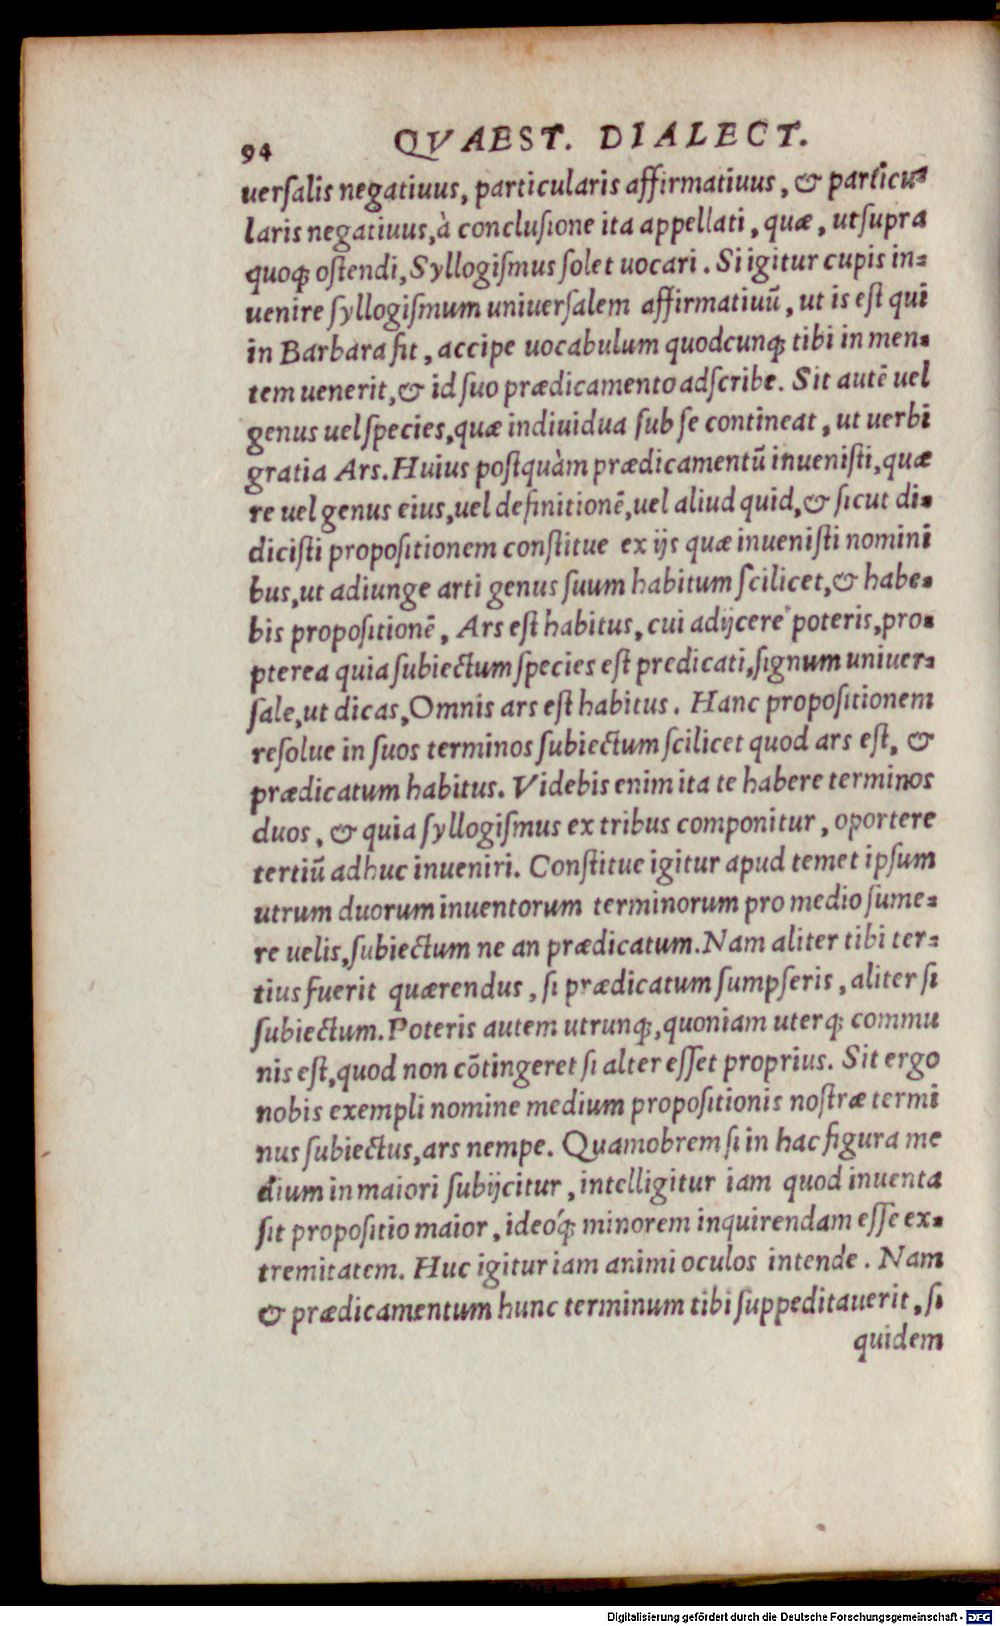 94 QVAEST. DIALECT.
uerſalis negatiuus, particularis affirmatiuus, & particu⸗
laris negatiuus, à concluſione ita appellati, quæ, ut ſupra
quoqꝫ oſtendi, Syllogiſmus ſolet uocari. Si igitur cupis in⸗
uenire ſyllogiſmum uniuerſalem affirmatiuũ, ut is eſt qui
in Barbara fit, accipe uocabulum quodcunqꝫ tibi in men⸗
tem uenerit, & id ſuo prædicamento adſcribe. Sit autẽ uel
genus uel ſpecies, quæ indiuidua ſub ſe contineat, ut uerbi
gratia Ars. Huius poſtquàm prædicamentũ inueniſti, quæ
re uel genus eius, uel definitionẽ, uel aliud quid, & ſicut di⸗
diciſti propoſitionem conſtitue ex ijs quæ inueniſti nomini
bus, ut adiunge arti genus ſuum habitum ſcilicet, & habe⸗
bis propoſitionẽ, Ars eſt habitus, cui adijcere poteris, pro⸗
pterea quia ſubiectum ſpecies eſt predicati, ſignum uniuer⸗
ſale, ut dicas, Omnis ars eſt habitus. Hanc propoſitionem
reſolue in ſuos terminos ſubiectum ſcilicet quod ars eſt, &
prædicatum habitus. Videbis enim ita te habere terminos
duos, & quia ſyllogiſmus ex tribus componitur, oportere
tertiũ adhuc inueniri. Conſtitue igitur apud temet ipſum
utrum duorum inuentorum terminorum pro medio ſume⸗
re uelis, ſubiectum ne an prædicatum. Nam aliter tibi ter⸗
tius fuerit quærendus, ſi prædicatum ſumpſeris, aliter ſi
ſubiectum. Poteris autem utrunqꝫ, quoniam uterqꝫ commu
nis eſt, quod non cõtingeret ſi alter eſſet proprius. Sit ergo
nobis exempli nomine medium propoſitionis noſtræ termi
nus ſubiectus, ars nempe. Quamobrem ſi in hac figura me
dium in maiori ſubijcitur, intelligitur iam quod inuenta
ſit propoſitio maior, ideóqꝫ minorem inquirendam eſſe ex⸗
tremitatem. Huc igitur iam animi oculos intende. Nam
& prædicamentum hunc terminum tibi ſuppeditauerit, ſi
quidem
Digitalisierung gefördert durch die Deutsche Forschungsgemeinschaft - DFG